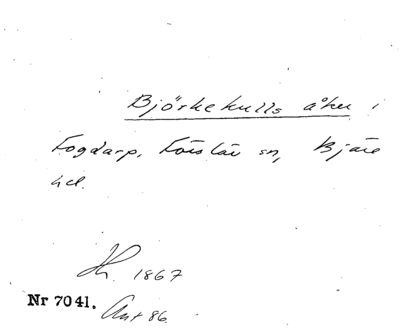 Björkekulls åker i
Fogdarp, Förslöv sn, Bjäre
hd.
1867
Nr 7041. Ant 86.